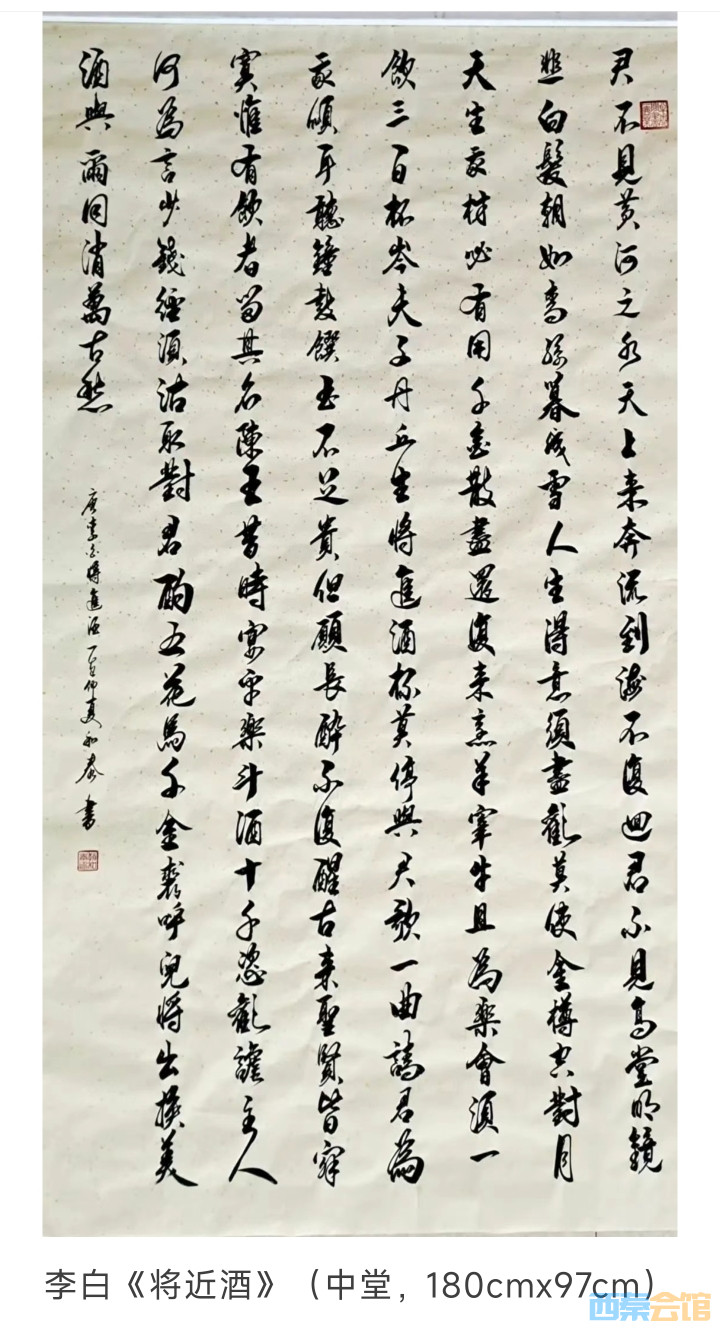 君不見黃河之水天上來奔流到海不復迴君不見高堂明鏡
悲白髮朝如青絲暮成雪人生得意須盡歡莫使金樽空對月
天生我材必有用千金散盡還復來烹羊宰牛且為樂會須一
飲三百杯岑夫子丹丘生將進酒杯莫停與君歌一曲請君為
我傾耳聽鐘鼓饌玉不足貴但願長醉不復醒古來聖賢皆寂
寞惟有飲者留其名陳王昔時宴平樂斗酒十千恣歡謔主人
何為言少錢徑須沽取對君酌五花馬千金裘呼兒將出換美
酒與爾同消萬古愁
唐李白將進酒丁酉仲夏和泰書
李白《将近酒》（中堂，180cmx97cm）
西秦会馆